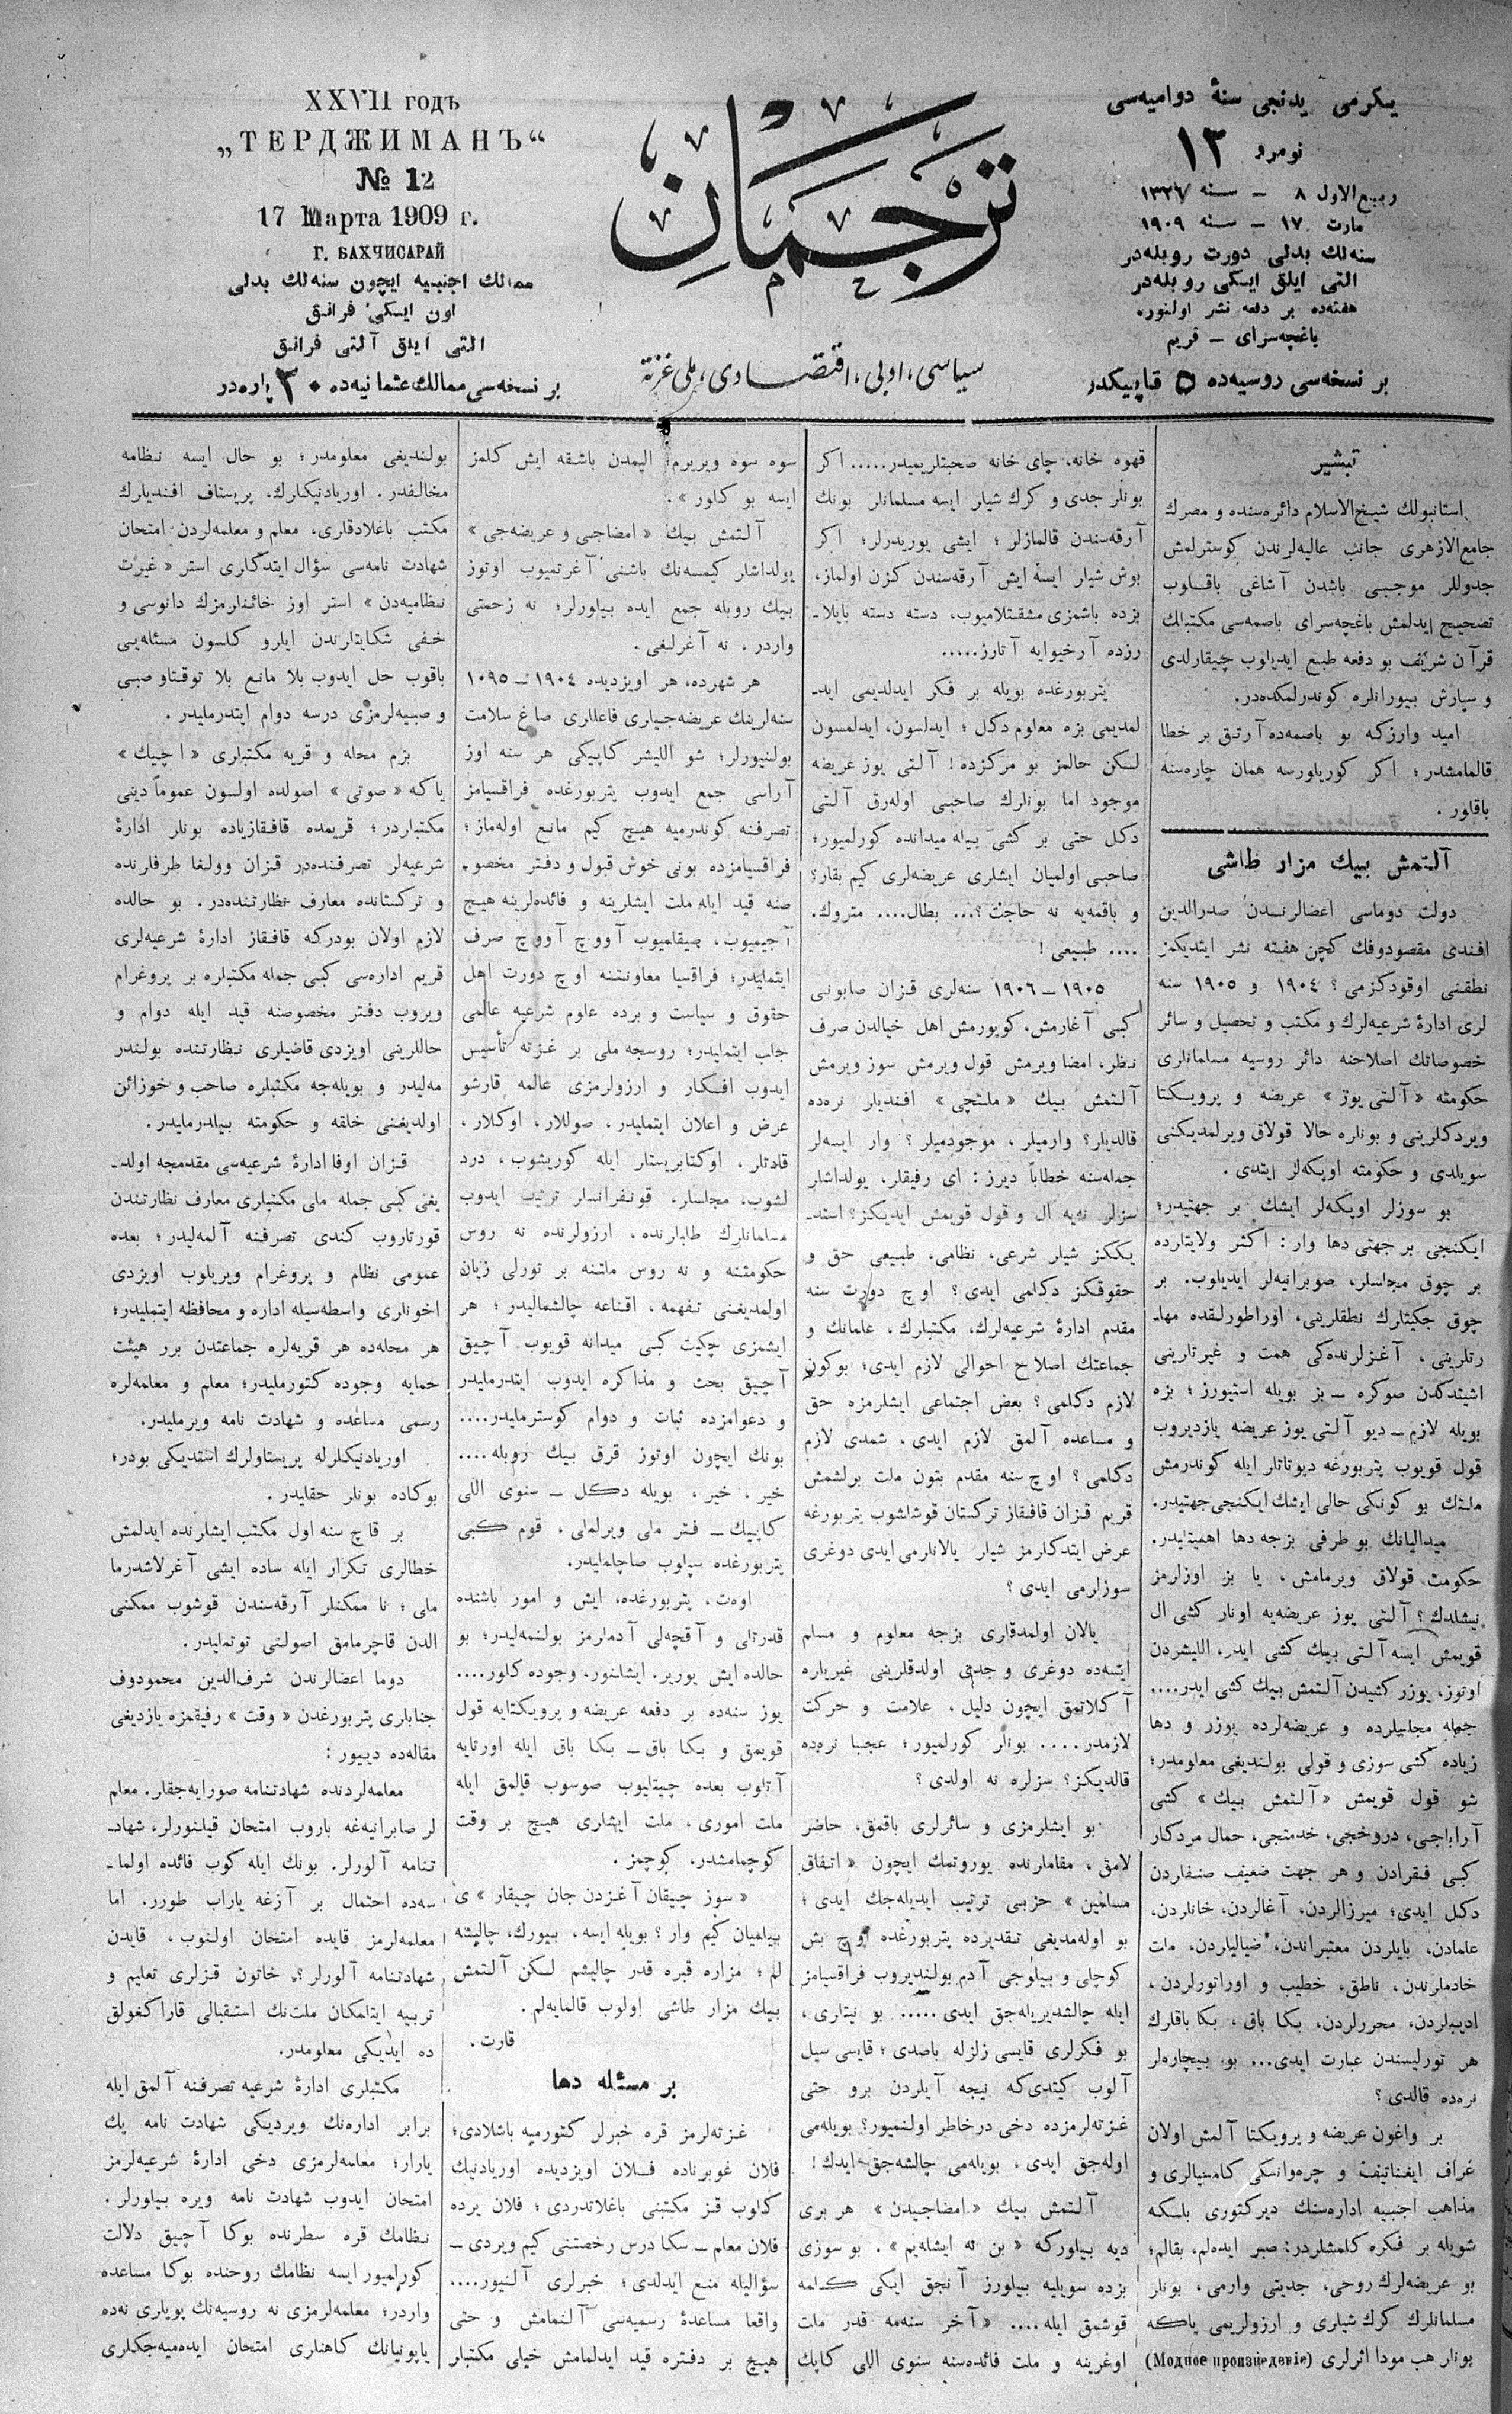 XXVII годъ
„ТЕРДЖИМАНЪ“
№ 12
17 Марта 1909 г.
Г. БАХЧИСАРАЙ
ممالك اجنبیه ایچون سنه‌لك بدلی
اون ایكی فرانق
التی آیلق آلتی فرانق
بر نسخه‌سی ممالك عثمانیه‌ده ٣٠ پاره‌در
ترجمان
سیاسی، ادبی، اقتصادی، ملی غزته
یكرمی یدنجی سنهٔ دوامیه‌سی
نومرو ١٢
ربیع الاول ٨ – سنه
مارت ١٧ – سنه ١٩٠٩
سنه‌لك بدلی دورت روبله‌در
التی ایلق ایكی روبله‌در
هفته‌ده بر دفعه نشر اولنور.
باغچه‌سرای – قریم
بر نسخه‌سی روسیه‌ده ٥ قاپیكدر
تبشیر
استانبولك شیخ‌الاسلام دائره‌سنده و مصرك
جامع‌الازهری جانب عالیه‌لرندن كوسترلمش
جدوللر موجبی باشدن آشاغی باقلوب
تصحیح ایدلمش باغچه‌سرای باصمه‌سی مكتبلك
قرآن شریف بو دفعه طبع ایدیلوب چیقارلدی
و سپارش بیورانلره كوندرلمكده‌در.
امید وارزكه بو باصمه‌ده آرتق بر خطا
قالمامشدر؛ اكر كوریلورسه همان چاره‌سنه
باقلور.
آلتمش بیك مزار طاشی
دولت دوماسی اعضالرندن صدرالدین
افندی مقصودوفك كچن هفته نشر ایتدیكمز
نطقنی اوقودكزمی؟ ١٩٠٤ و ١٩٠٥ سنه
لری ادارهٔ شرعیه‌لرك و مكتب و تحصیل و سائر
خصوصاتك اصلاحنه دائر روسیه مسلمانلری
حكومته «آلتی یوز» عریضه و پرویكتا
ویردكلرینی و بونلره حالا قولاق ویرلمدیكنی
سویلدی و حكومته اوپكه‌لر ایتدی.
بو سوزلر اوپكه‌لر ایشك بر جهتیدر؛
ایكنجی بر جهتی دها وار: اكثر ولایتلرده
بر چوق مجلسلر، صوبرانیه‌لر ایدیلوب، بر
چوق جكیتلرك نطقلرینی، اوراطورلقده مها-
رتلرینی، آغزلرنده‌كی همت و غیرتلرینی
اشیتدكدن صوكره – بز بویله استیورز؛ بزه
بویله لازم – دیو آلتی یوز عریضه یازدیروب
قول قویوب پتربورغه دپوتاتلر ایله كوندرمش
ملتك بو كونكی حالی ایشك ایكنجی جهتیدر.
میدالیانك بو طرفی بزجه دها اهمیتلیدر.
حكومت قولاق ویرمامش، یا بز اوزلرمز
نیشلدك؟ آلتی یوز عریضه‌یه اونار كشی ال
قویمش ایسه آلتی بیك كشی ایدر، اللیشردن
اوتوز، یوزر كشیدن آلتمش بیك كشی ایدر....
جمله مجلسلرده و عریضه‌لرده یوزر و دها
زیاده كشی سوزی و قولی بولندیغی معلومدر؛
شو قول قویمش «آلتمش بیك» كشی
آراباجی، دروخجی، خدمتجی، حمال مردكار
كبی فقرادن و هر جهت ضعیف صنفلردن
دكل ایدی؛ میرزالردن، آغالردن، خانلردن،
علمادن، بایلردن معتبراندن، ضیالیلردن، ملت
خادملرندن، ناطق، خطیب و اوراتورلردن،
ادیبلردن، محررلردن، بكا باق، بكا باقلرك
هر تورلیسندن عبارت ایدی... بو بیچاره‌لر
نره‌ده قالدی؟
بر واغون عریضه و پرویكتا آلمش اولان
غراف ایغناتیف و چره‌وانسكی كامسیالری و
مذاهب اجنبیه اداره‌سنك دیركتوری باسكه
شویله بر فكره كلمشلردر: صبر ایده‌لم، بقالم؛
بو عریضه‌لرك روحی، جدیتی وارمی، بونلر
مسلمانلرك كرك شیلری و ارزولریمی یاكه
بونلر هب مودا اثرلری (Модное произведеніе)
قهوه خانه، چای خانه صحبتلریمیدر..... اكر
بونلر جدی و كرك شیلر ایسه مسلمانلر بونك
آرقه‌سندن قالمازلر؛ ایشی یوریدرلر؛ اكر
بوش شیلر ایسه ایش آرقه‌سندن كزن اولماز،
بزده باشمزی مشقتلامیوب، دسته دسته بایلا-
رزده آرخیوایه آتارز.....
پتربورغده بویله بر فكر ایدلدیمی اید-
لمدیمی بزه معلوم دكل؛ ایدلسون، ایدلمسون
لكن حالمز بو مركزده! آلتی یوز عریضه
موجود اما بونلرك صاحبی اوله‌رق آلتی
دكل حتی بر كشی بیله میدانده كورلمیور؛
صاحبی اولمیان ایشلری عریضه‌لری كیم بقار؟
و باقمه‌یه نه حاجت؟... بطال.... متروك.
.... طبیعی!
١٩٠٥ – ١٩٠٦ سنه‌لری قزان صابونی
كبی آغارمش، كوپورمش اهل خیالدن صرف
نظر، امضا ویرمش قول ویرمش سوز ویرمش
آلتمش بیك «ملتچی» افندیلر نره‌ده
قالدیلر؟ وارمیلر، موجودمیلر؟ وار ایسه‌لر
جمله‌سنه خطاباً دیرز: ای رفیقلر، یولداشلر
سزلر نه‌یه ال و قول قویمش ایدیكز؟ استد-
یككز شیلر شرعی، نظامی، طبیعی حق و
حقوقكز دكلمی ایدی؟ اوچ دورت سنه
مقدم ادارهٔ شرعیه‌لرك، مكتبلرك، علمانك و
جماعتك اصلاح احوالی لازم ایدی؛ بوكون
لازم دكلمی؟ بعض اجتماعی ایشلرمزه حق
و مساعده آلمق لازم ایدی. شمدی لازم
دكلمی؟ اوچ سنه مقدم بتون ملت برلشمش
قریم قزان قافقاز تركستان قوشلشوب پتربورغه
عرض ایتدكلرمز شیلر یالانلرمی ایدی دوغری
سوزلرمی ایدی؟
یالان اولمدقلری بزجه معلوم و مسلم
ایسه‌ده دوغری و جدی اولدقلرینی غیریلره
آكلاتمق ایچون دلیل، علامت و حركت
لازمدر.... بونلر كورلمیور؛ عجبا نره‌ده
قالدیكز؟ سزلره نه اولدی؟
بو ایشلرمزی و سائرلری باقمق، حاضر
لامق، مقاملرنده یوروتمك ایچون «اتفاق
مسلمین» حزبی ترتیب ایدیله‌جك ایدی؛
بو اوله‌مدیغی تقدیرده پتربورغده اوچ بش
كوچلی و بیلوجی آدم بولندیروب فراقسیامز
ایله چالشدیریله‌جق ایدی ..... بو نیتلری،
بو فكرلری قایسی زلزله باصدی؛ قایسی سیل
آلوب كیتدی‌كه نیجه آیلردن برو حتی
غزته‌لرمزده دخی درخاطر اولنمیور؟ بویله‌می
اوله‌جق ایدی، بویله‌می چالشه‌جق ایدك!
آلتمش بیك «امضاجیدن» هر بری
دیه بیلوركه «بن نه ایشله‌یم». بو سوزی
بزده سویلیه بیلورز آنجق ایكی كلمه
قوشمق ایله.... «آخر سنه‌مه قدر ملت
اوغرینه و ملت فائده‌سنه سنوی اللی كاپك
سوه سوه ویریرم؛ الیمدن باشقه ایش كلمز
ایسه بو كلور».
آلتمش بیك «امضاجی و عریضه‌جی»
یولداشلر كیمسه‌نك باشنی آغرتمیوب اوتوز
بیك روبله جمع ایده بیلورلر؛ نه زحمتی
واردر، نه آغرلغی.
هر شهرده، هر اویزدیده ١٩٠٤ – ١٠٩٥
سنه‌لرینك عریضه‌جیلری فاعللری صاغ سلامت
بولنیورلر؛ شو اللیشر كاپیكی هر سنه اوز
آراسی جمع ایدوب پتربورغده فراقسیامز
تصرفنه كوندرمیه هیچ كیم مانع اوله‌ماز؛
فراقسیامزده بونی خوش قبول و دفتر مخصو-
صنه قید ایله ملت ایشلرینه و فائده‌لرینه هیچ
آجیمیوب، چیقلمیوب آووچ آووچ صرف
ایتملیدر؛ فراقسیا معاونتنه اوچ دورت اهل
حقوق و سیاست و برده علوم شرعیه عالمی
جلب ایتملیدر؛ روسجه ملی بر غزته تأسیس
ایدوب افكار و ارزولرمزی عالمه قارشو
عرض و اعلان ایتملیدر، صوللار، اوكلار،
قادتلر، اوكتابریستلر ایله كوریشوب، درد
لشوب، مجلسلر، قونفرانسلر ترتیب ایدوب
مسلمانلرك طلبلرنده، ارزولرنده نه روس
حكومتنه و نه روس ملتنه بر تورلی زیان
اولمدیغنی تفهمه، اقناعه چالشمالیدر؛ هر
ایشمزی چكیت كبی میدانه قویوب آچیق
آچیق بحث و مذاكره ایدوب ایتدرملیدر
و دعوامزده ثبات و دوام كوسترملیدر....
بونك ایچون اوتوز قرق بیك روبله....
خیر، خیر، بویله دكل – سنوی اللی
كاپیك – فتر ملی ویرلملی، قوم كبی
پتربورغده سپلوب صاچلملیدر.
اوت، پتربورغده، ایش و امور باشنده
قدرتلی و آقچه‌لی آدملرمز بولنمه‌لیدر؛ بو
حالده ایش یوریر. ایشلنور، وجوده كلور....
یوز سنه‌ده بر دفعه عریضه و پرویكتایه قول
قویمق و بكا باق – بكا باق ایله اورتایه
آتلوب بعده چیتلیوب صوسوب قالمق ایله
ملت اموری، ملت ایشلری هیچ بر وقت
كوچمامشدر، كوچمز.
«سوز چیقان آغزدن جان چیقار» ی
بیلمیان كیم وار؟ بویله ایسه، بیورك، چالیشه
لم؛ مزاره قبره قدر چالیشم لكن آلتمش
بیك مزار طاشی اولوب قالمایه‌لم.
قارت.
بر مسئله دها
غزته‌لرمز قره خبرلر كتورمیه باشلادی؛
فلان غوبرناده فلان اویزدیده اوریادنیك
كلوب قز مكتبنی باغلاتدردی؛ فلان یرده
فلان معلم – سكا درس رخصتنی كیم ویردی –
سؤالیله منع ایدلدی؛ خبرلری آلنیور....
واقعا مساعدهٔ رسمیه‌سی آلنمامش و حتی
هیچ بر دفتره قید ایدلمامش خیلی مكتبلر
بولندیغی معلومدر؛ بو حال ایسه نظامه
مخالفدر. اوریادنیكلرك، پریستاف افندیلرك
مكتب باغلادقلری، معلم و معلمه‌لردن امتحان
شهادت نامه‌سی سؤال ایتدكلری استر «غیرت
نظامیه‌دن» استر اوز خائنلرمزك دانوسی و
خفی شكایتلرندن ایلرو كلسون مسئله‌یی
باقوب حل ایدوب بلا مانع بلا توقتاو صبی
و صبیه‌لرمزی درسه دوام ایتدرملیدر.
بزم محله و قریه مكتبلری «اچیك»
یاكه «صوتی» اصولده اولسون عموماً دینی
مكتبلردر؛ قریمده قافقازیاده بونلر ادارهٔ
شرعیه‌لر تصرفنده‌در قزان وولغا طرفلرنده
و تركستانده معارف نظارتنده‌در. بو حالده
لازم اولان بودركه قافقاز ادارهٔ شرعیه‌لری
قریم اداره‌سی كبی جمله مكتبلره بر پروغرام
ویروب دفتر مخصوصنه قید ایله دوام و
حاللرینی اویزدی قاضیلری نظارتنده بولندر
مه‌لیدر و بویله‌جه مكتبلره صاحب و خوزائن
اولدیغنی خلقه و حكومته بیلدرملیدر.
قزان اوفا ادارهٔ شرعیه‌سی مقدمجه اولد-
یغی كبی جمله ملی مكتبلری معارف نظارتندن
قورتاروب كندی تصرفنه آلمه‌لیدر؛ بعده
عمومی نظام و پروغرام ویریلوب اویزدی
اخونلری واسطه‌سیله اداره و محافظه ایتملیدر؛
هر محله‌ده هر قریه‌لره جماعتدن برر هیئت
حمایه وجوده كتورملیدر؛ معلم و معلمه‌لره
رسمی مساعده و شهادت نامه ویرملیدر.
اوریادنیكلرله پریستاولرك استدیكی بودر؛
بوكاده بونلر حقلیدر.
بر قاچ سنه اول مكتب ایشلرنده ایدلمش
خطالری تكرار ایله ساده ایشی آغرلاشدرما
ملی؛ نا ممكنلر آرقه‌سندن قوشوب ممكنی
الدن قاچرمامق اصولنی توتملیدر.
دوما اعضالرندن شرف‌الدین محمودوف
جنابلری پتربورغدن «وقت» رفیقمزه یازدیغی
مقاله‌ده دییور:
معلمه‌لردنده شهادتنامه صورایه‌جقلر. معلم
لر صابرانیه‌غه باروب امتحان قیلنورلر، شهاد-
تنامه آلورلر. بونك ایله كوب فائده اولما-
سه‌ده احتمال بر آزغه یاراب طورر. اما
معلمه‌لرمز قایده امتحان اولنوب، قایدن
شهادتنامه آلورلر؟. خاتون قزلری تعلیم و
تربیه ایتلمكان ملت‌نك استقبالی قاراكغولق
ده ایدیكی معلومدر.
مكتبلری ادارهٔ شرعیه تصرفنه آلمق ایله
برابر اداره‌نك ویردیكی شهادت نامه پك
یارار؛ معلمه‌لرمزی دخی ادارهٔ شرعیه‌لرمز
امتحان ایدوب شهادت نامه ویره بیلورلر.
نظامك قره سطرنده بوكا آچیق دلالت
كورلمیور ایسه نظامك روحنده بوكا مساعده
واردر؛ معلمه‌لرمزی نه روسیه‌نك پوپلری نه‌ده
یاپونیانك كاهنلری امتحان ایده‌میه‌جكلری